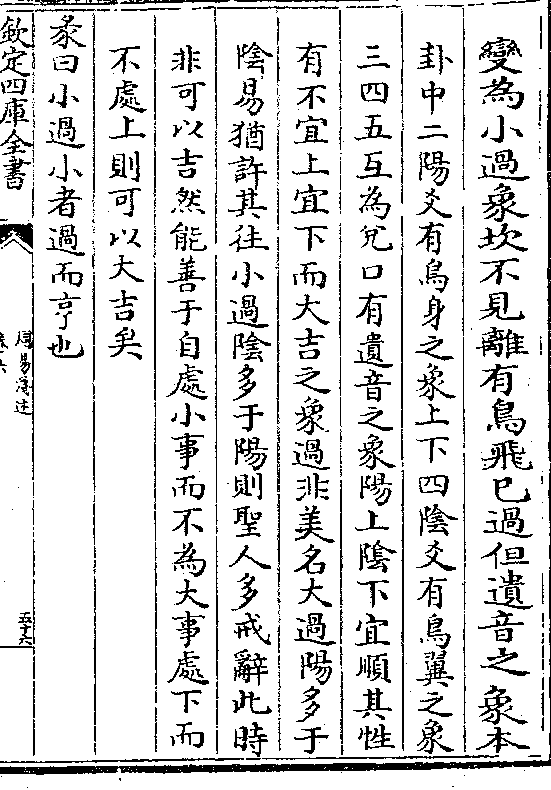 變為小過象坎不見離有鳥飛已過但遺音之象本
卦中二陽爻有鳥身之象上下四陰爻有鳥翼之象
三四五互為兌口有遺音之象陽上陰下宜順其性
有不宜上宜下而大吉之象過非美名大過陽多于
陰易猶許其往小過陰多于陽則聖人多戒辭此時
非可以吉然能善于自處小事而不為大事處下而
不處上則可以大吉矣
彖曰小過小者過而亨也
欽定四庫全書
周易淺述
卷六
五十六